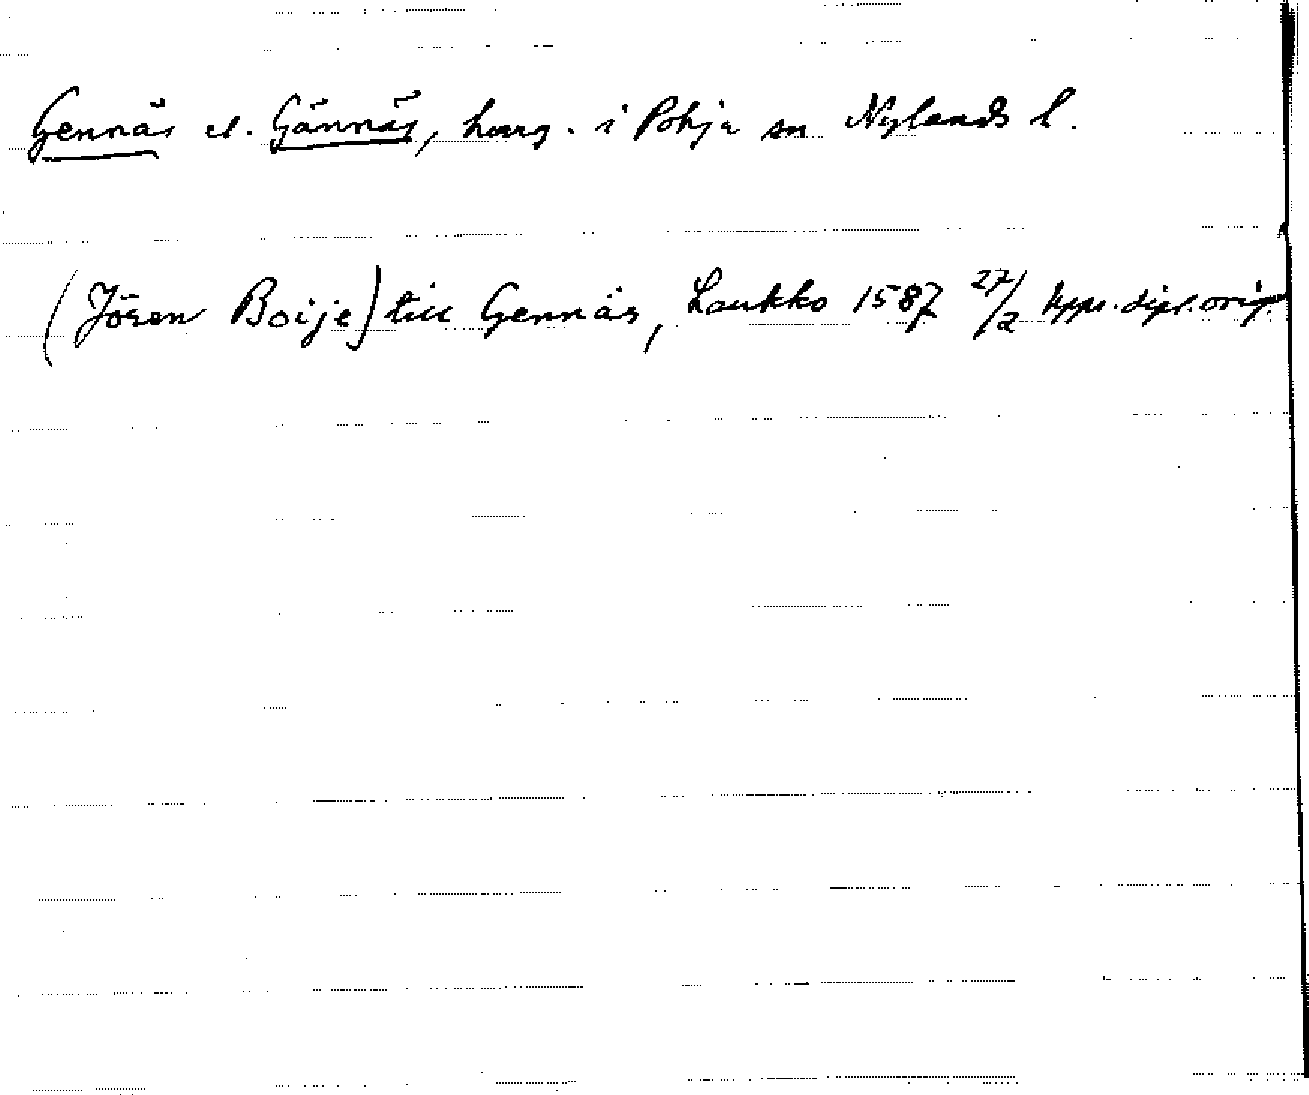 Gennäs el. Gännäs, herrg. i Pohja sn Nylands l.
(Jören Boije) till Gennäs, Laukko 1587 27/2 Upps. dipl. orig.